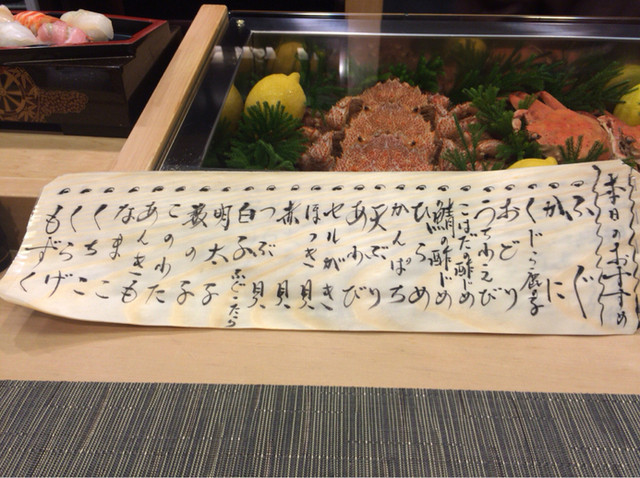 本日のおすすめ
ふぐ
かに
くじら鹿の子
おどり
うちわえび
こはだの酢じめ
鯖の酢じめ
ひらめ
かんぱち
天ぶり
あわび
セルがき
ほっき貝
赤貝
つぶ貝
白子
明太子
数の子
このわた
あんきも
なまこ
くちこ
くらげ
もずく